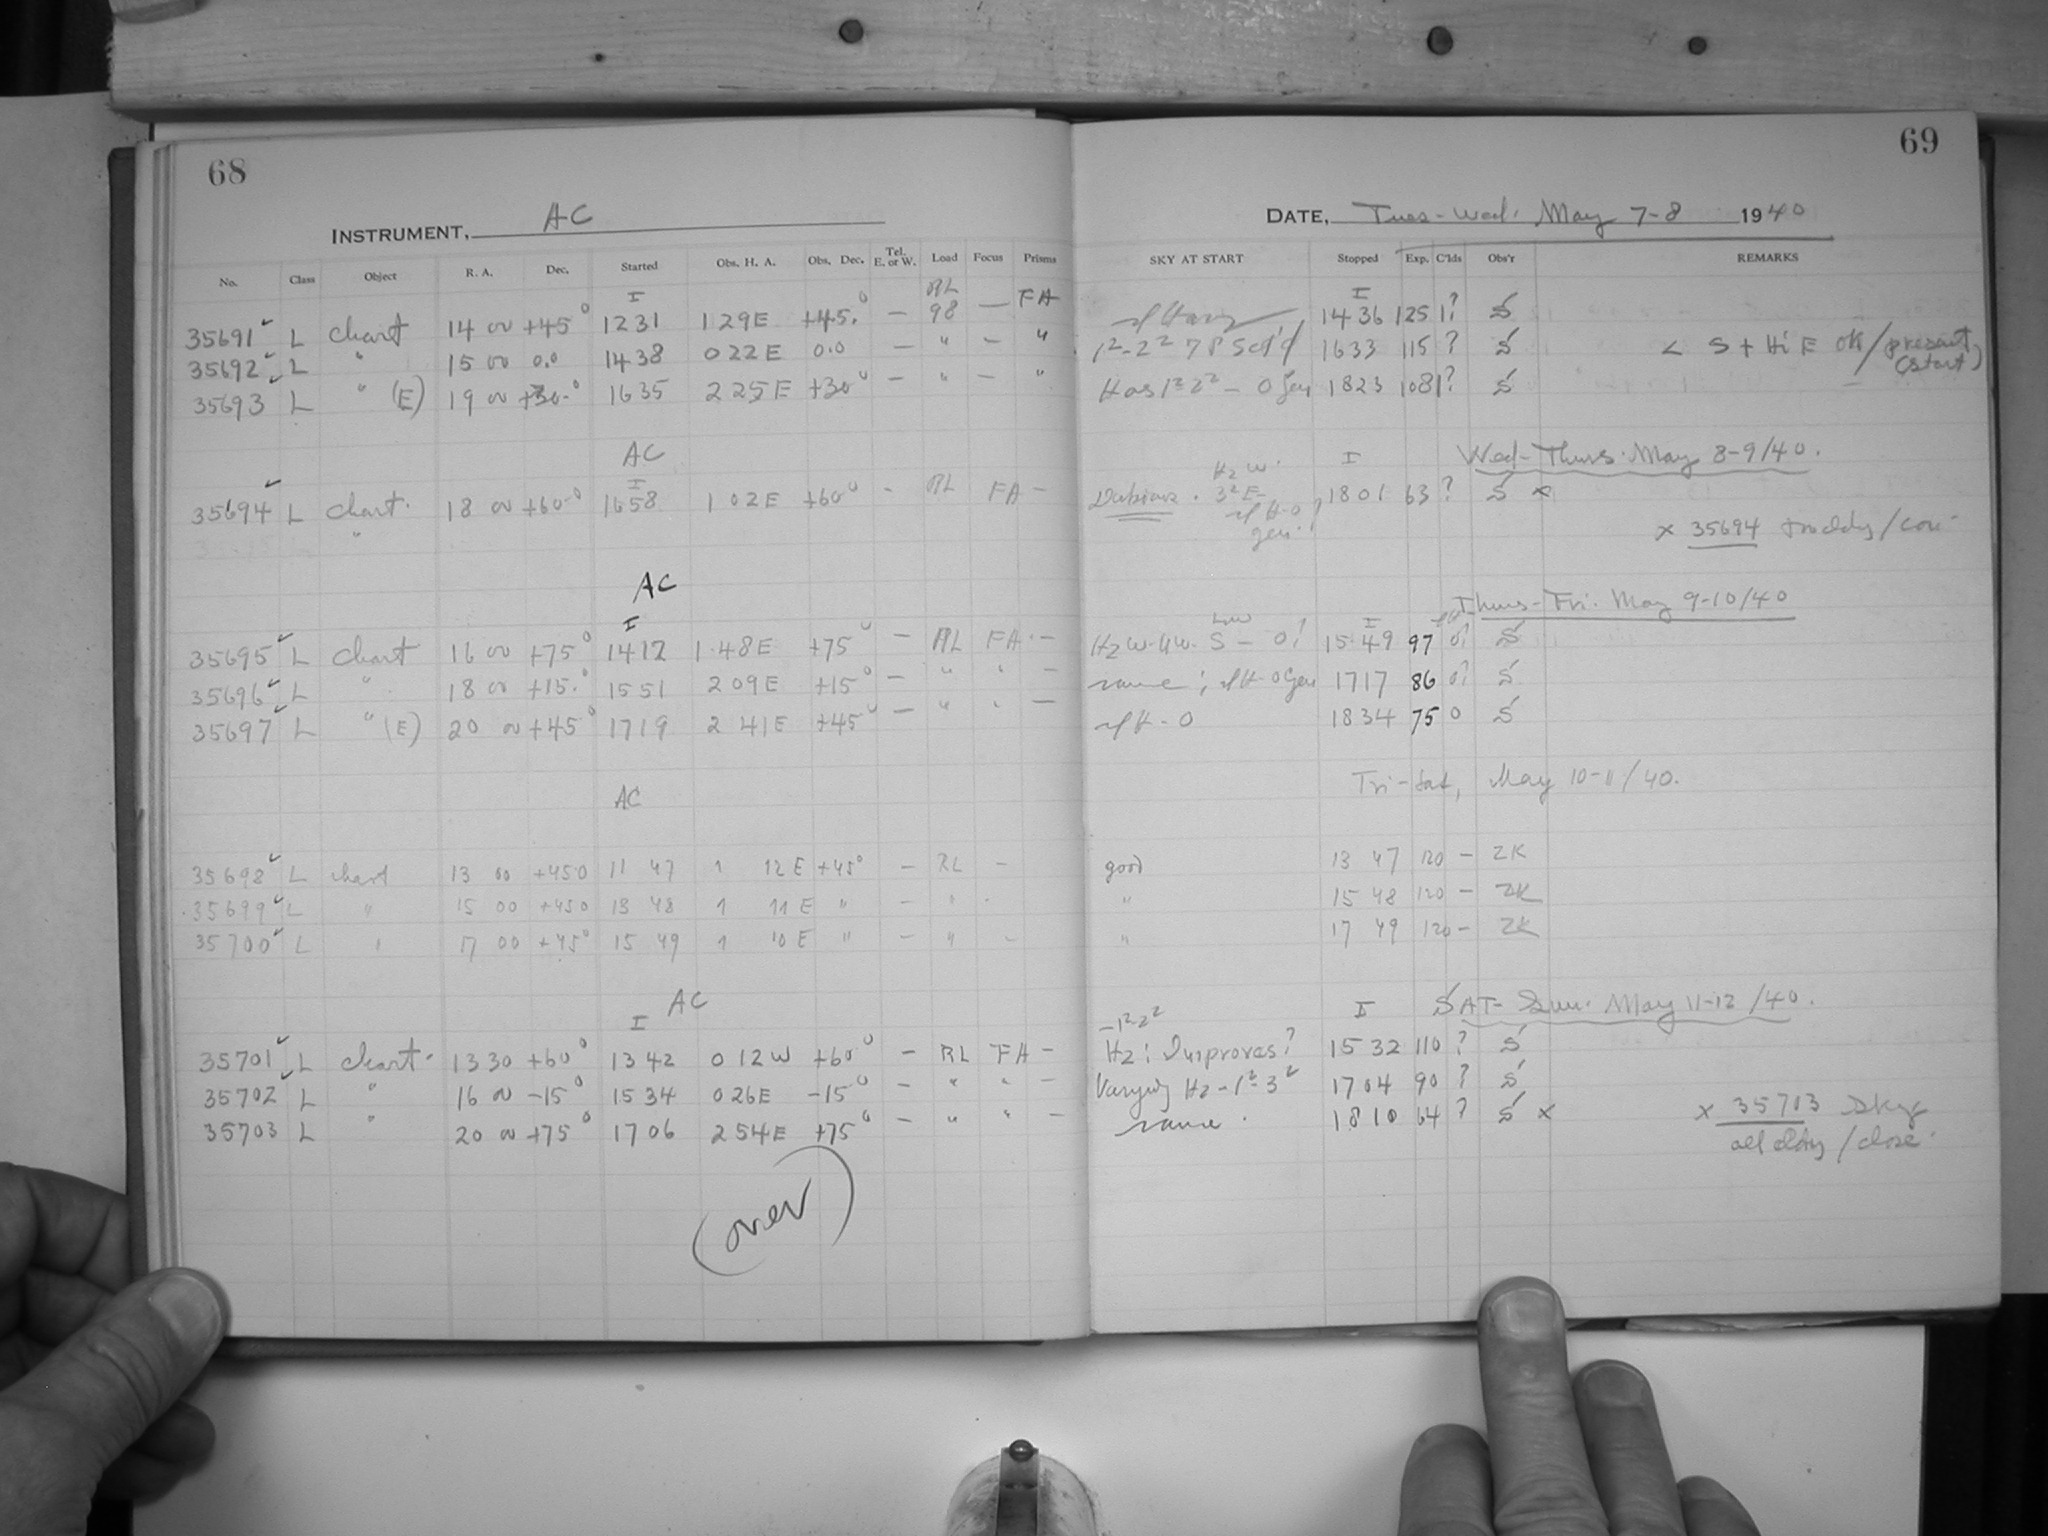 68
INSTRUMENT, AC
No. Class Object R. A. Dec. Started Obs. H. A. Obs. Dec. Tel. E. or W. Load Focus Prisms
I RL FA
35691 L Chart 14 00 +45° 1231 1 29E +45.° — 98 —
35692 L " 15 00 0.0 1438 0 22 E 0.0 — " — "
35693 L " (E) 19 00 +30° 1635 2 25 E +30° — " — "
AC
I
35694 L Chart. 18 00 +60° 1658 1 02 E +60° - RL FA -
"
AC
I
35695 L Chart 16 00 +75° 1412 1 48 E +75° — RL FA. —
35696 L " 18 00 +15.° 1551 2 09 E +15° — " " —
35697 L " (E) 20 00 +45° 1719 2 41 E +45° — " " —
AC
35698 L chart 13 00 +45.0 11 47 1 12 E +45° — RL —
35699 L " 15 00 +45.0 13 48 1 11 E " — "
35700 L " 17 00 +45° 15 49 1 10 E " — " -
AC
I
35701 L Chart. 13 30 +60° 1342 0 12 W +60° — RL FA —
35702 L " 16 00 -15° 1534 0 26 E -15° — " " —
35703 L " 20 00 +75° 1706 2 54 E +75° — " " —
(over)
69
DATE, Tues - Wed. May 7-8 1940
SKY AT START Stopped Exp. C'lds Obs'r REMARKS
I
1436 125 1? S
1²-2² 1633 115 ? S < S + Hi E OK / present (start)
Has 1² 2² - 0 Gen 1823 108 1? S
I Wed - Thurs. May 8-9/40.
Hz W.
Dubious. 3² E- 1801 63 ? S x
gen.
x 35694 cldy /
Thurs - Fri. May 9-10/40
Low I
Hz W. S - 0? 15 49 97 0? S
same ; 0 Gen 1717 86 0? S
- 0 1834 75 0 S
Fri - Sat, May 10-11/40.
good 13 47 120 - ZK
" 15 48 120 - ZK
" 17 49 120 - ZK
I SAT - Sun. May 11-12 /40.
-1²-2²
Hz ; Improves? 1532 110 ? S
Varying Hz - 1²-3² 1704 90 ? S
same. 1810 64 ? S x x 35713 Sky
all cldy / close.